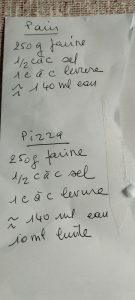 Pain
250g farine
1/2 càc sel
1 c à c levure
≈ 140 ml eau
Pizza
250g farine
1/2 càc sel
1 c à c levure
≈ 140 ml eau
10ml huile